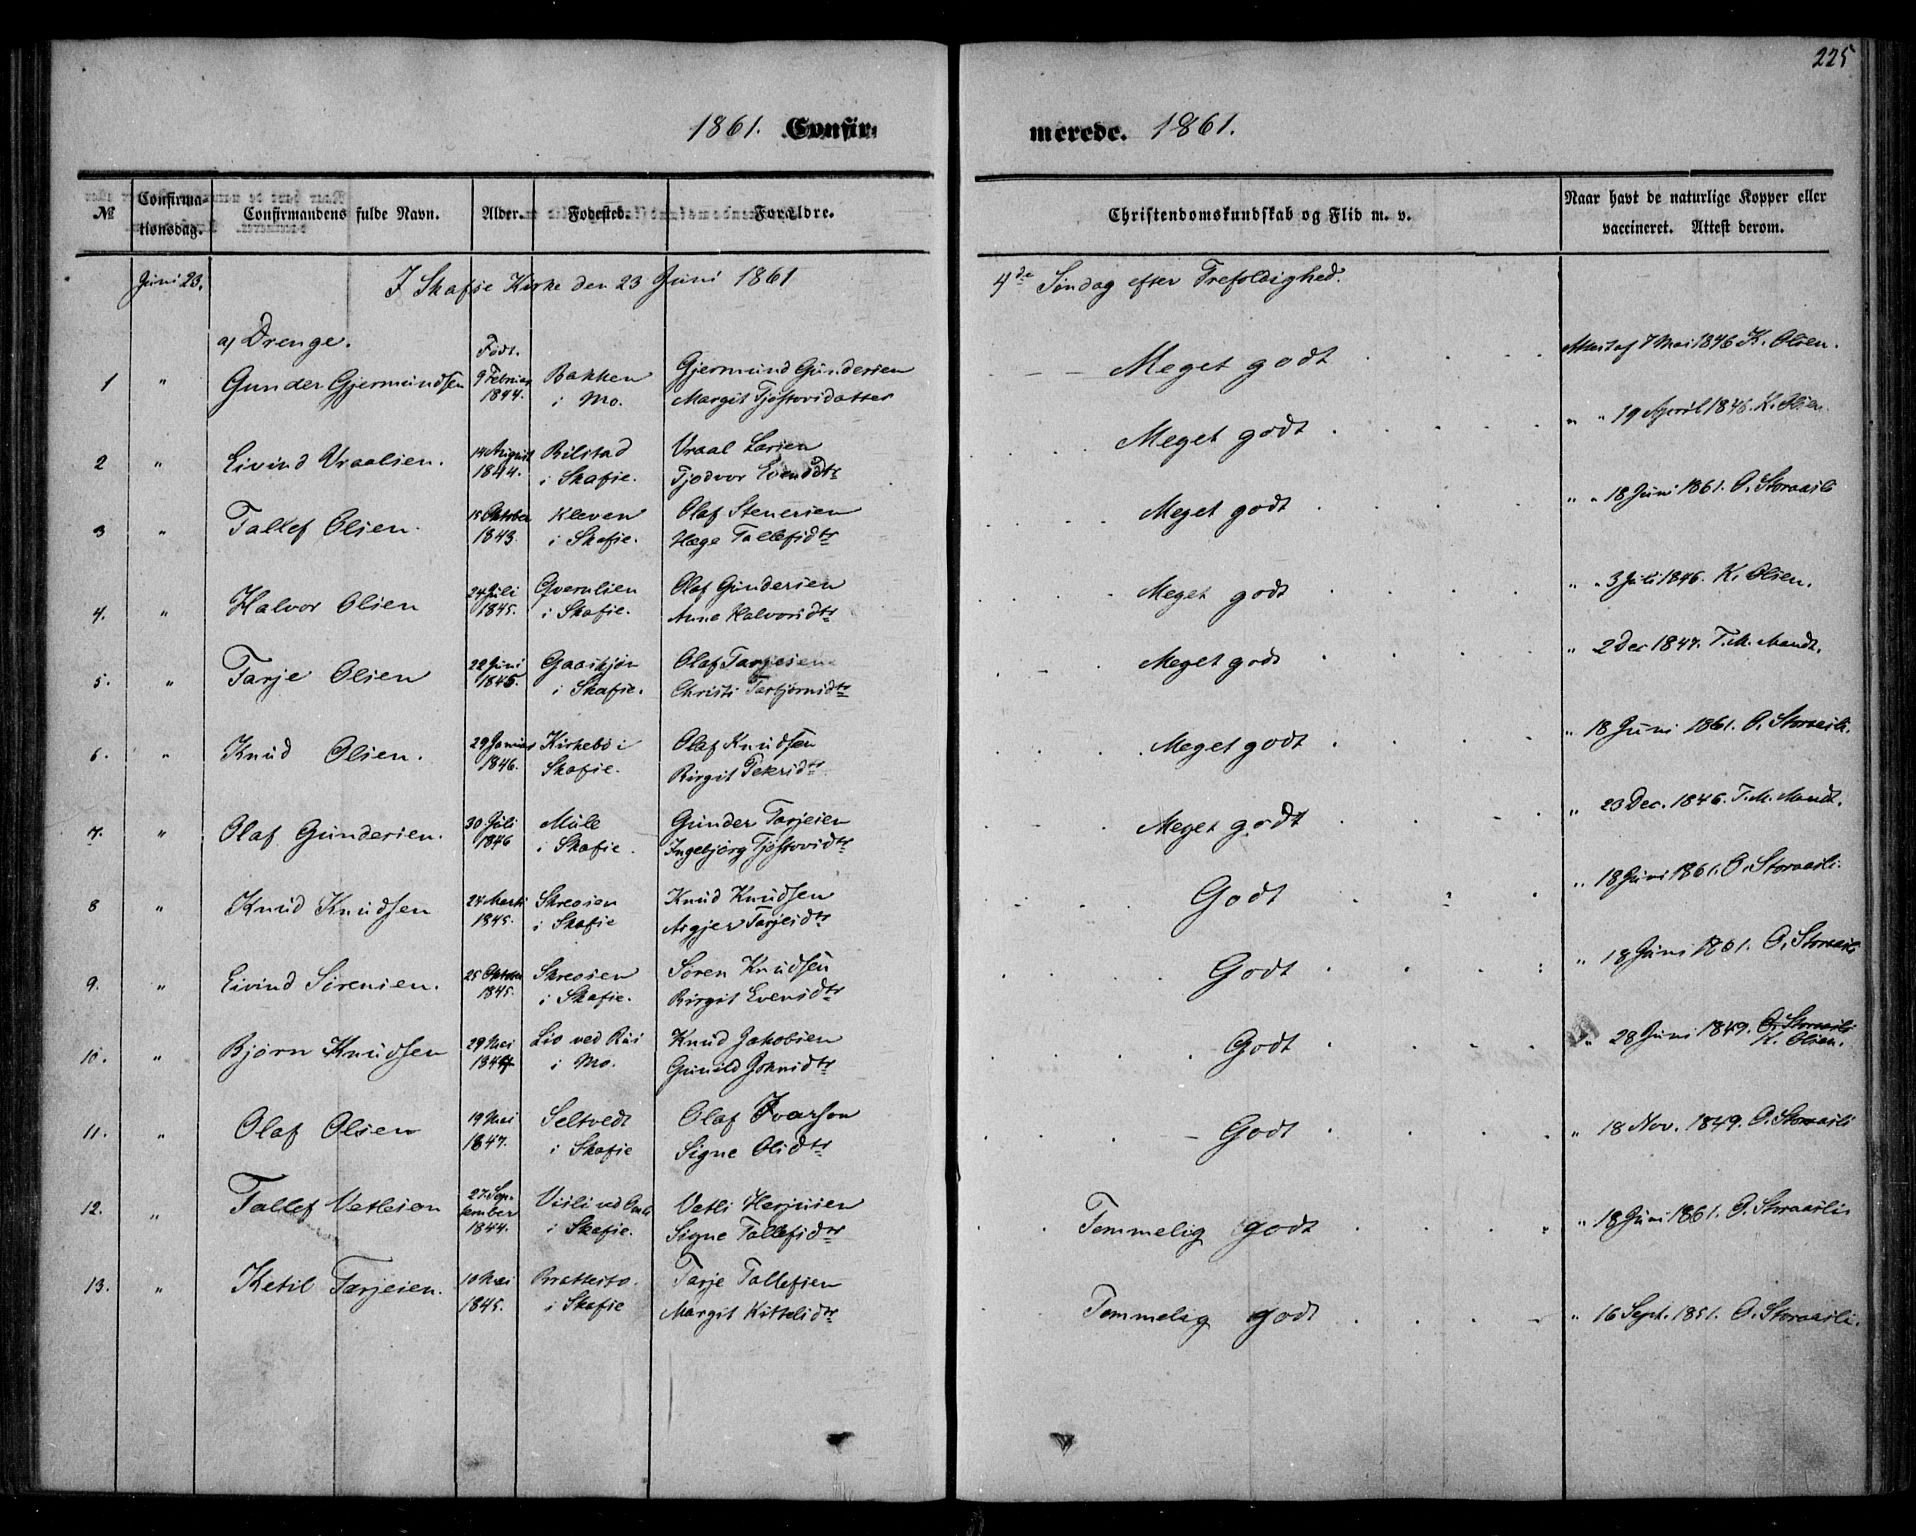 225
1861. Confir-
merede. 1861.
№
Confirmationsdag.
Confirmandens fulde Navn.
Alder.
Fødested.
Forældre.
Christendomskundskab og Flid m. v.
Naar havt de naturlige Kopper eller vaccineret. Attest derom.
Juni 23. I Skafse Kirke den 23 Juni 1861
4de Søndag efter Trefoldighed.
a) Drenge.
Født.
1 " Gunder Gjermundsen 9 Februar 1844. Bakken i Mo. Gjermund Gundersen Margit Tjøstovsdatter
Meget godt
Attest af 7 Mai 1846 K. Olsen.
2 " Eivind Vraalsen. 14 August 1844. Bilstad i Skafse. Vraal Larsen Tjodvor Evendsdtr
Meget godt
" " 19 April 1846. K. Olsen
3 " Tallef Olsen. 15 Oktober 1843. Kleven i Skafse. Olaf Stenersen Hæge Tallefsdtr
Meget godt
" " 18 Juni 1861. O. Storaasli
4. " Halvor Olsen 24 Juli 1845. i Skafse. Olaf Gundersen Anne Halvorsdtr
Meget godt
" " 3 Juli 1846. K. Olsen.
5. " Tarje Olsen 22 Juni 1845. i Skafse. Olaf Tarjesen Christi Torbjørnsdtr
Meget godt
" 2 Dec 1847. T. M. Mandt.
6. " Knud Olsen. 29 Januar 1846. Kirkebø i Skafse. Olaf Knudsen Birgit
Meget godt
" 18 Juni 1861. O. Storaasli.
7. " Olaf Gundersen. 30 Juli 1846 Mule i Skafse. Gunder Tarjesen Ingebjørg Tjøstovsdtr
Meget godt
" 23 Dec. 1846. T. M. Mandt.
8 " Knud Knudsen 24 Marts 1845. Skreosen i Skafse Knud Knudsen Asgjer Tarjesdtr
Godt
" 18 Juni 1861. O. Storaasli.
9. " Eivind Sørensen. 25 Oktober 1845. Skreosen i Skafse. Søren Knudsen Birgit Evensdtr
Godt
" 18 Juni 1861. O. Storaasli
10. " Bjørn Knudsen 29 Mai Lio ved Rui i Mo. Knud Jakobsen Gunild Johnsdtr
Godt
" 28 Juni 1849. O. Storaasli K. Olsen.
11. " Olaf Olsen 19 Mai 1847. Seltvedt i Skafse Olaf Ivarson Signe Olsdtr
Godt
" 18 Nov. 1849. O. Storaasli
12. " Tallef Vetleson 27 September 1844. Visli ved i Skafse. Vetli Herjusen Signe Tallefsdtr
Temmelig godt
" 18 Juni 1861. O. Storaasli
13. " Ketil Tarjesen. 10 Mai 1845. Brattesto. i Skafse Tarje Tallefsen Margit Kittelsdtr
Temmelig godt
" 16 Sept. 1851. O. Storaasli.